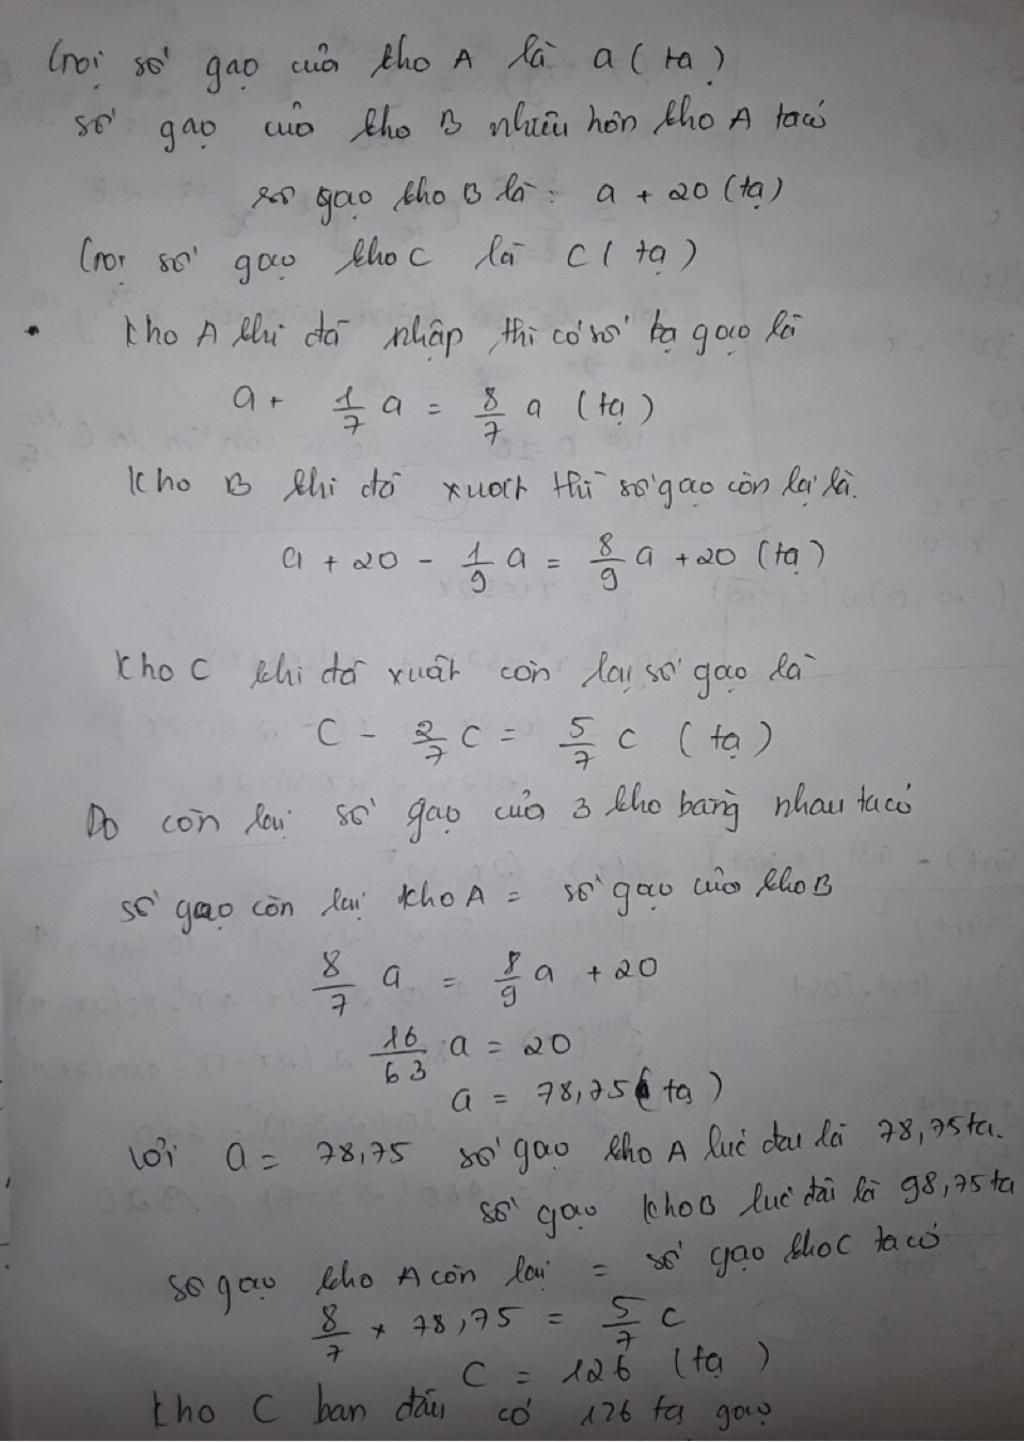 Gọi số gạo của kho A là a ( tạ )
số gạo của kho B nhiều hơn kho A ta có
số gạo kho B là : a + 20 (tạ)
Gọi số gạo kho C là C ( tạ )
• kho A khi đã nhập thì có số tạ gạo là
a + 1/7 a = 8/7 a (tạ)
Kho B khi đã xuất thì số gạo còn lại là.
a + 20 - 1/9 a = 8/9 a + 20 (tạ)
Kho C khi đã xuất còn lại số gạo là
C - 2/7 C = 5/7 C ( tạ )
Do còn lại số gạo của 3 kho bằng nhau ta có
số gạo còn lại kho A = số gạo của kho B
8/7 a = 8/9 a + 20
16/63 a = 20
a = 78,75 ( tạ )
Với a = 78,75 số gạo kho A lúc đầu là 78,75 tạ.
số gạo kho B lúc đầu là 98,75 tạ
số gạo kho A còn lại = số gạo kho C ta có
8/7 × 78,75 = 5/7 C
C = 126 (tạ )
kho C ban đầu có 126 tạ gạo